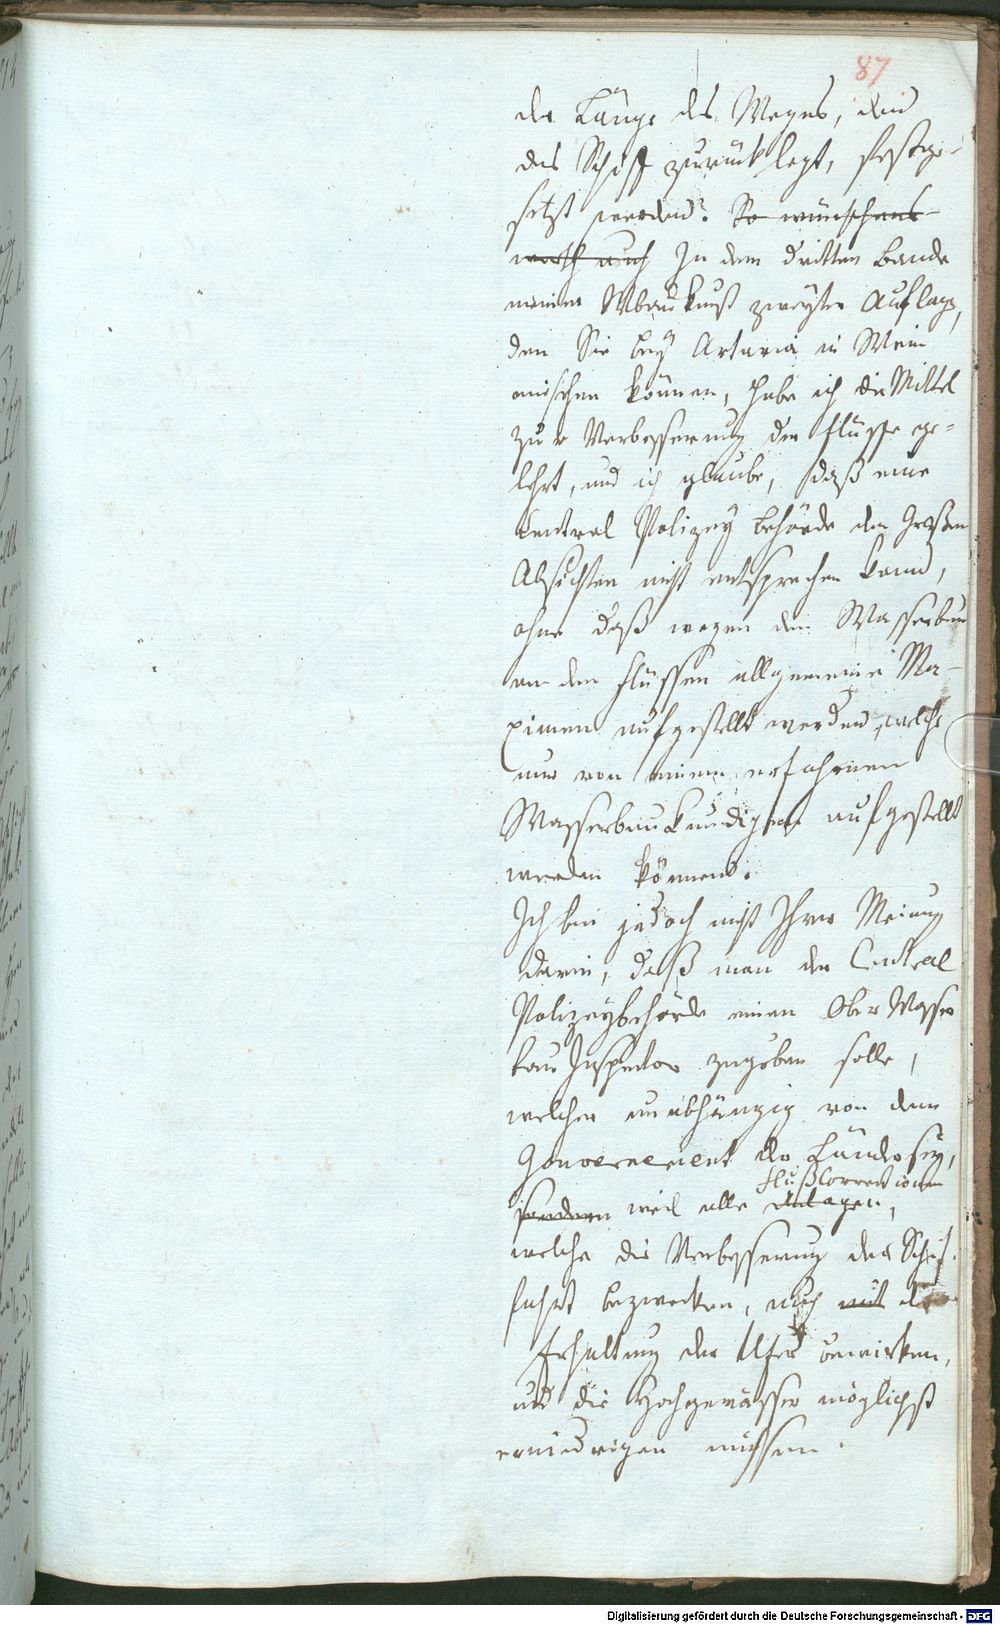 87
der Länge des Weges, den
das Schiff zurück legt, festge-
setzt werden. So wünschens-
werth auch In dem dritten Bande
meiner Wbaukunst zweyter Auflage,
den Sie bey Artaria in Wien
einsehen können, habe ich die Mittel
zur Verbesserung der Flüsse ge-
lehrt, und ich glaube, daß eine
Central Polizey Behörde den Großen
Absichten nicht entsprechen kann,
ohne daß wegen dem Wasserbau
an den Flüssen allgemeine Ma-
ximen aufgestellt werden, welche
nur von einem erfahrnen
Wasserbaukundigen aufgestellt
werden können.
Ich bin jedoch nicht Ihrer Meinung
darin, daß man der Central
Polizeybehörde einen Ober Wasser
bau Inspector zugeben solle,
welcher unabhängig von dem
Gouvernement der Länder sey,
Flußcorrectionen
sondern weil alle Anlagen,
welche die Verbesserung der Schif-
fahrt bezwecken, auch mit die
Erhaltung der Ufer bewirken,
und die Hochgewässer möglichst
erniedrigen müssen.
Digitalisierung gefördert durch die Deutsche Forschungsgemeinschaft - DFG